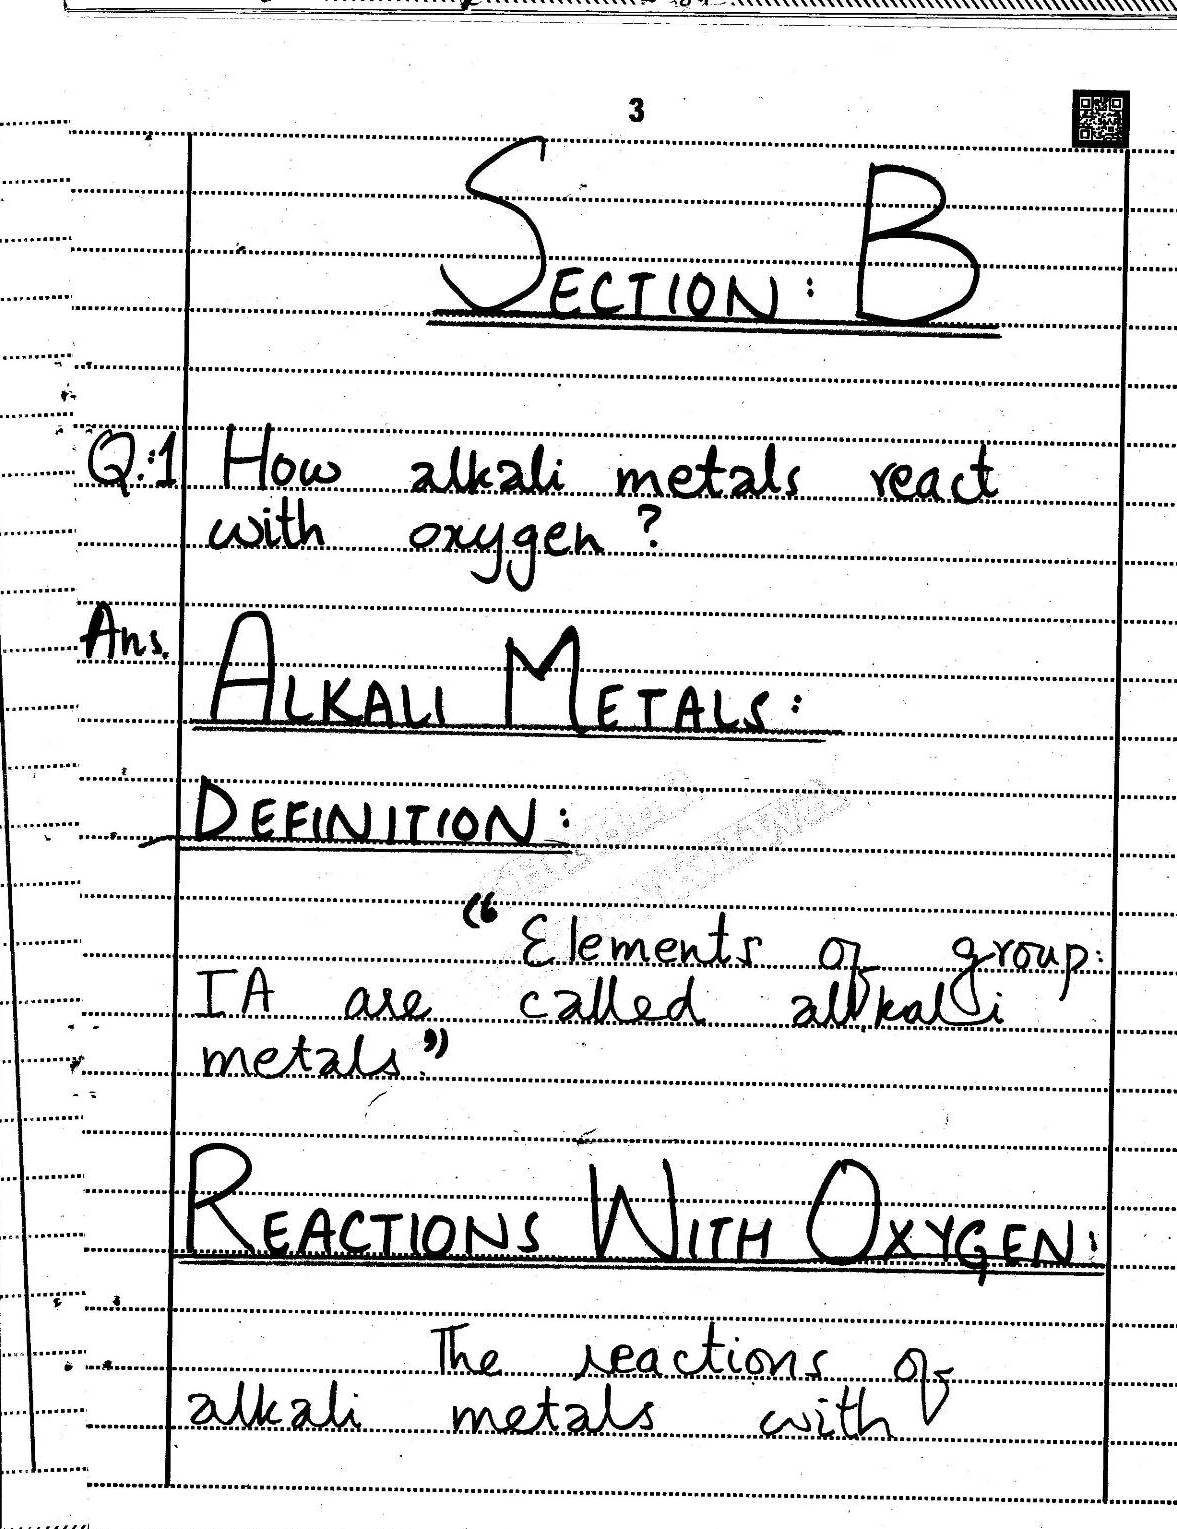 3
SECTION: B
Q:1 How alkali metals react
with oxygen?
Ans.
ALKALI METALS:
DEFINITION:
"Elements of group:
IA are called alkali
metals."
REACTIONS WITH OXYGEN:
The reactions of
alkali metals with